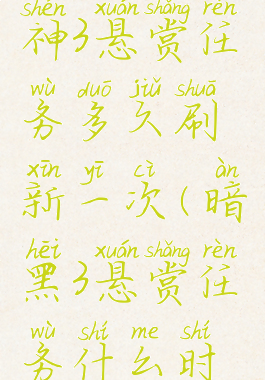 shén xuán shǎng rèn
神3悬赏任
wù duō jiǔ shuā
务多久刷
xīn yī cì àn
新一次(暗
hēi xuán shǎng rèn
黑3悬赏任
wù shí me shí
务什么时